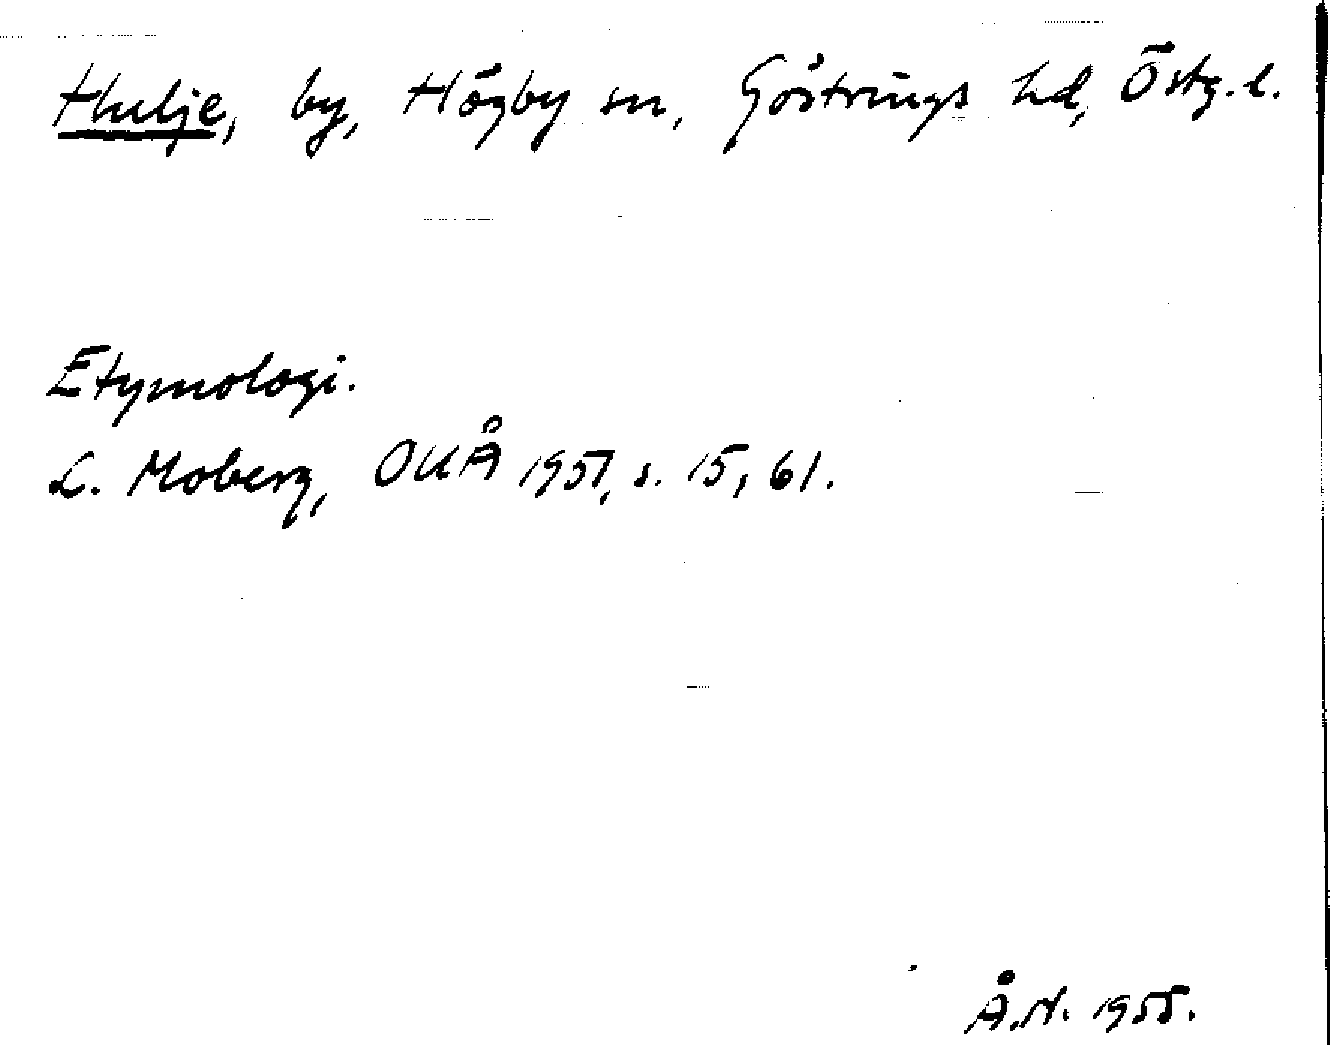 Hulje, by, Högby sn, Göstrings hd, Östg.l.
Etymologi.
L. Moberg, OUÅ 1951, s. 15, 61.
Å.N. 1955.